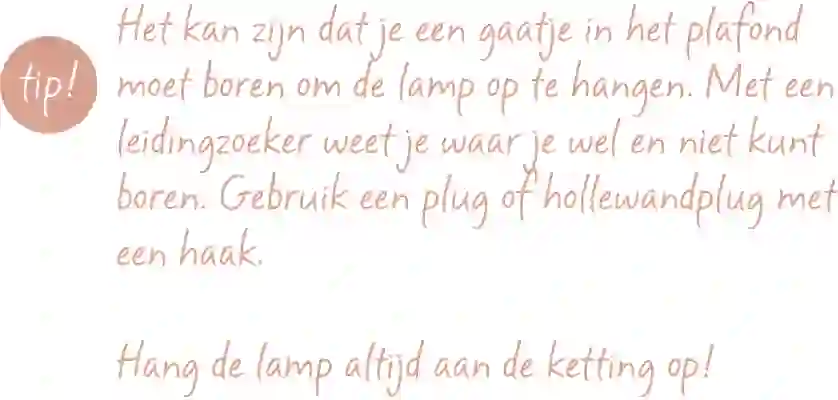 Het kan zijn dat je een gaatje in het plafond
tip!
moet boren om de lamp op te hangen. Met een
leidingzoeker weet je waar je wel en niet kunt
boren. Gebruik een plug of hollewandplug met
een haak.
Hang de lamp altijd aan de ketting op!